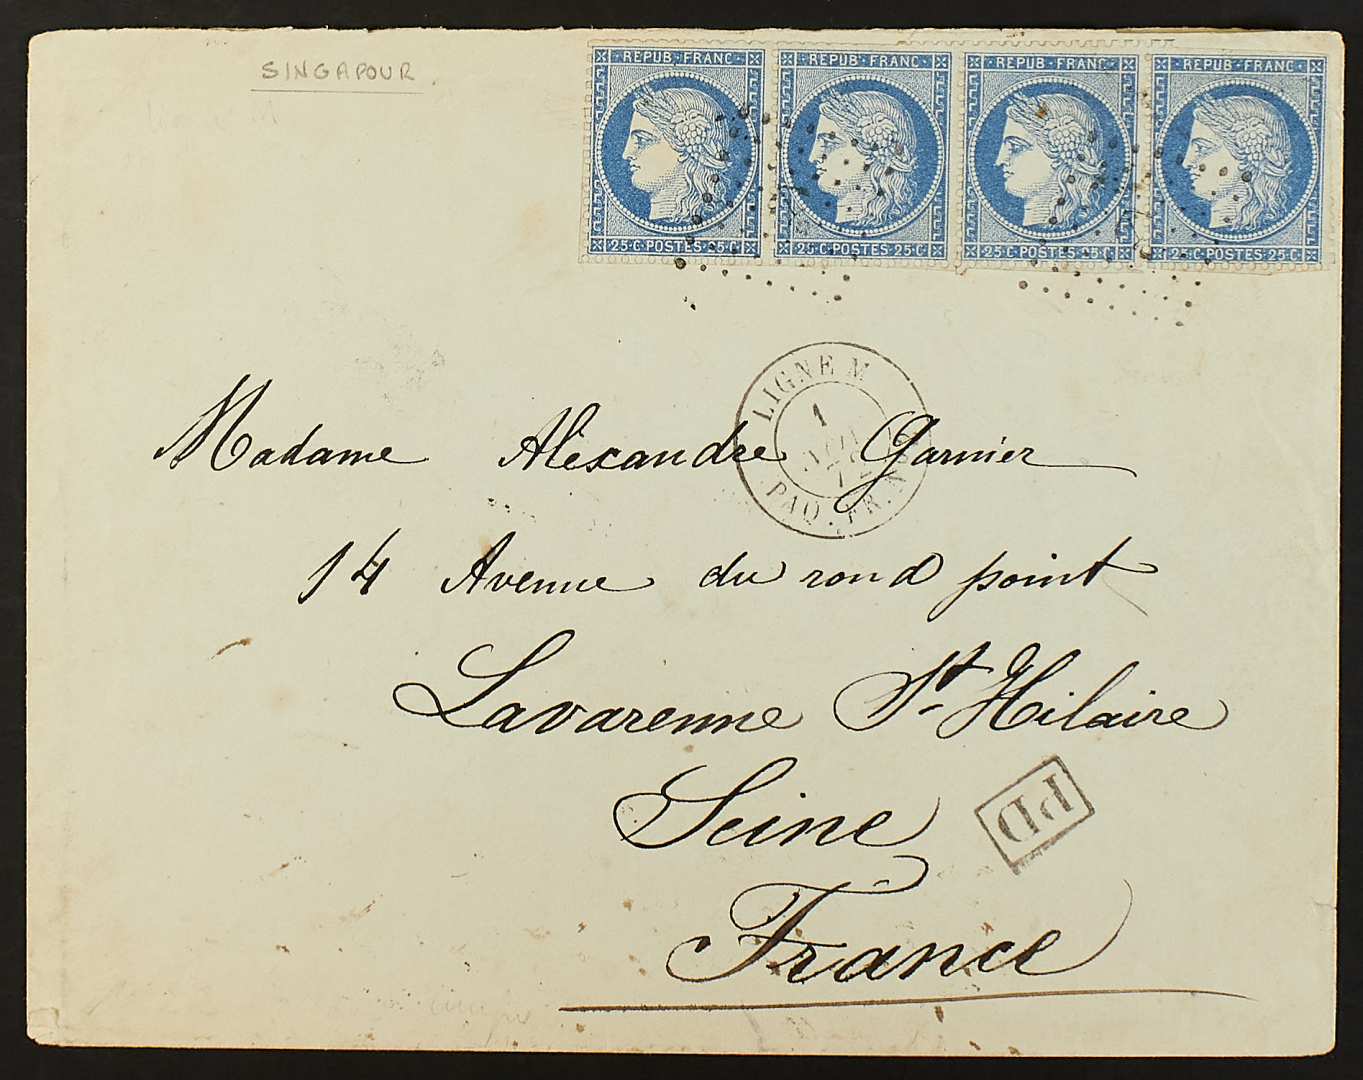 SINGAPOUR
REPUB. FRANC. REPUB. FRANC. REPUB. FRANC. REPUB. FRANC.
25.C.POSTES.25.C 25.C.POSTES.25.C 25.C.POSTES.25.C 25.C.POSTES.25.C
LIGNE M
1
72
PAQ. FR. N
Madame Alexandre Garnier
14 Avenue du rond point
Lavarenne St Hilaire
Seine
PD
France